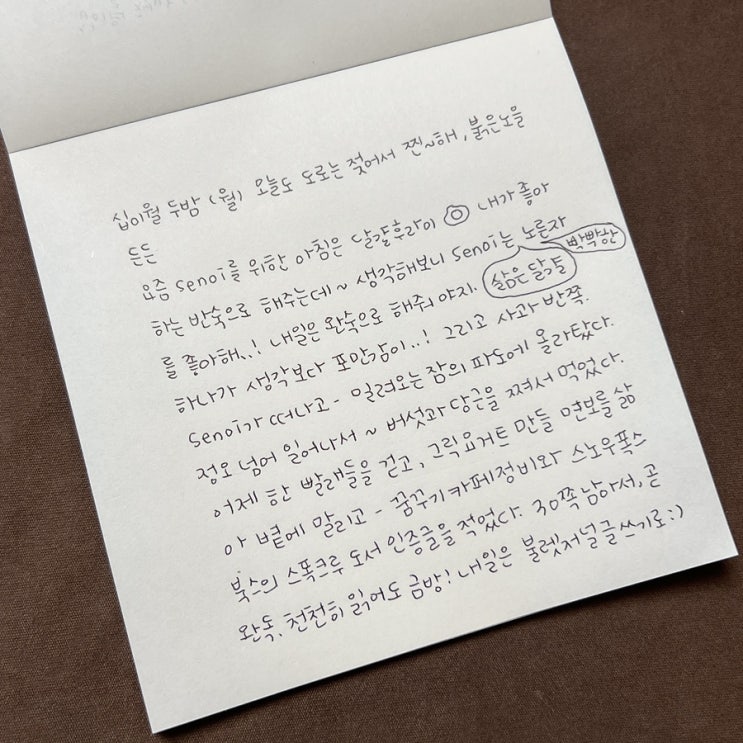 십이월 두밤 (월) 오늘도 도로는 젖어서 찐~해, 붉은노을
든든
요즘 senoi를 위한 아침은 달걀후라이 내가 좋아
하는 반숙으로 해주는데~ 생각해보니 senoi는 노른자 빡빡한
를 좋아해..! 내일은 완숙으로 해줘야지. 삶은 닭
하나가 생각보다 포만감이..! 그리고 사과 반쪽.
senoi가 떠나고- 밀려오는 잠의 파도에 올라탔다.
정오 넘어 일어나서~ 버섯과 당근을 쪄서 먹었다.
어제 한 빨래들을 걷고, 그릭요거트 만들 면보를 삶
아 볕에 말리고- 꿈꾸기카페정비와 스노우폭스
북스의 스폭크루 도서 인증글을 적었다. 30쪽 남아서, 곧
완독. 천천히 읽어도 금방! 내일은 불렛저널 글쓰기로:)